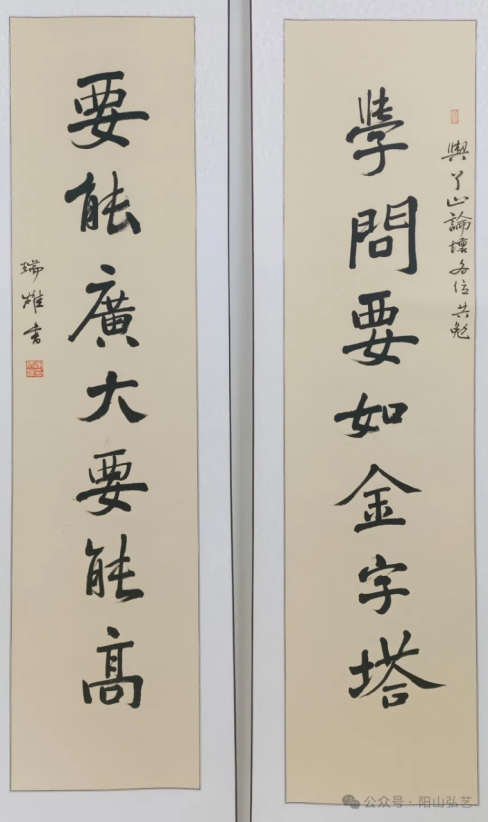 與丫山論壇各位共勉
學問要如金字塔
要能廣大要能高
瑞雄書
公众号·阳山弘艺